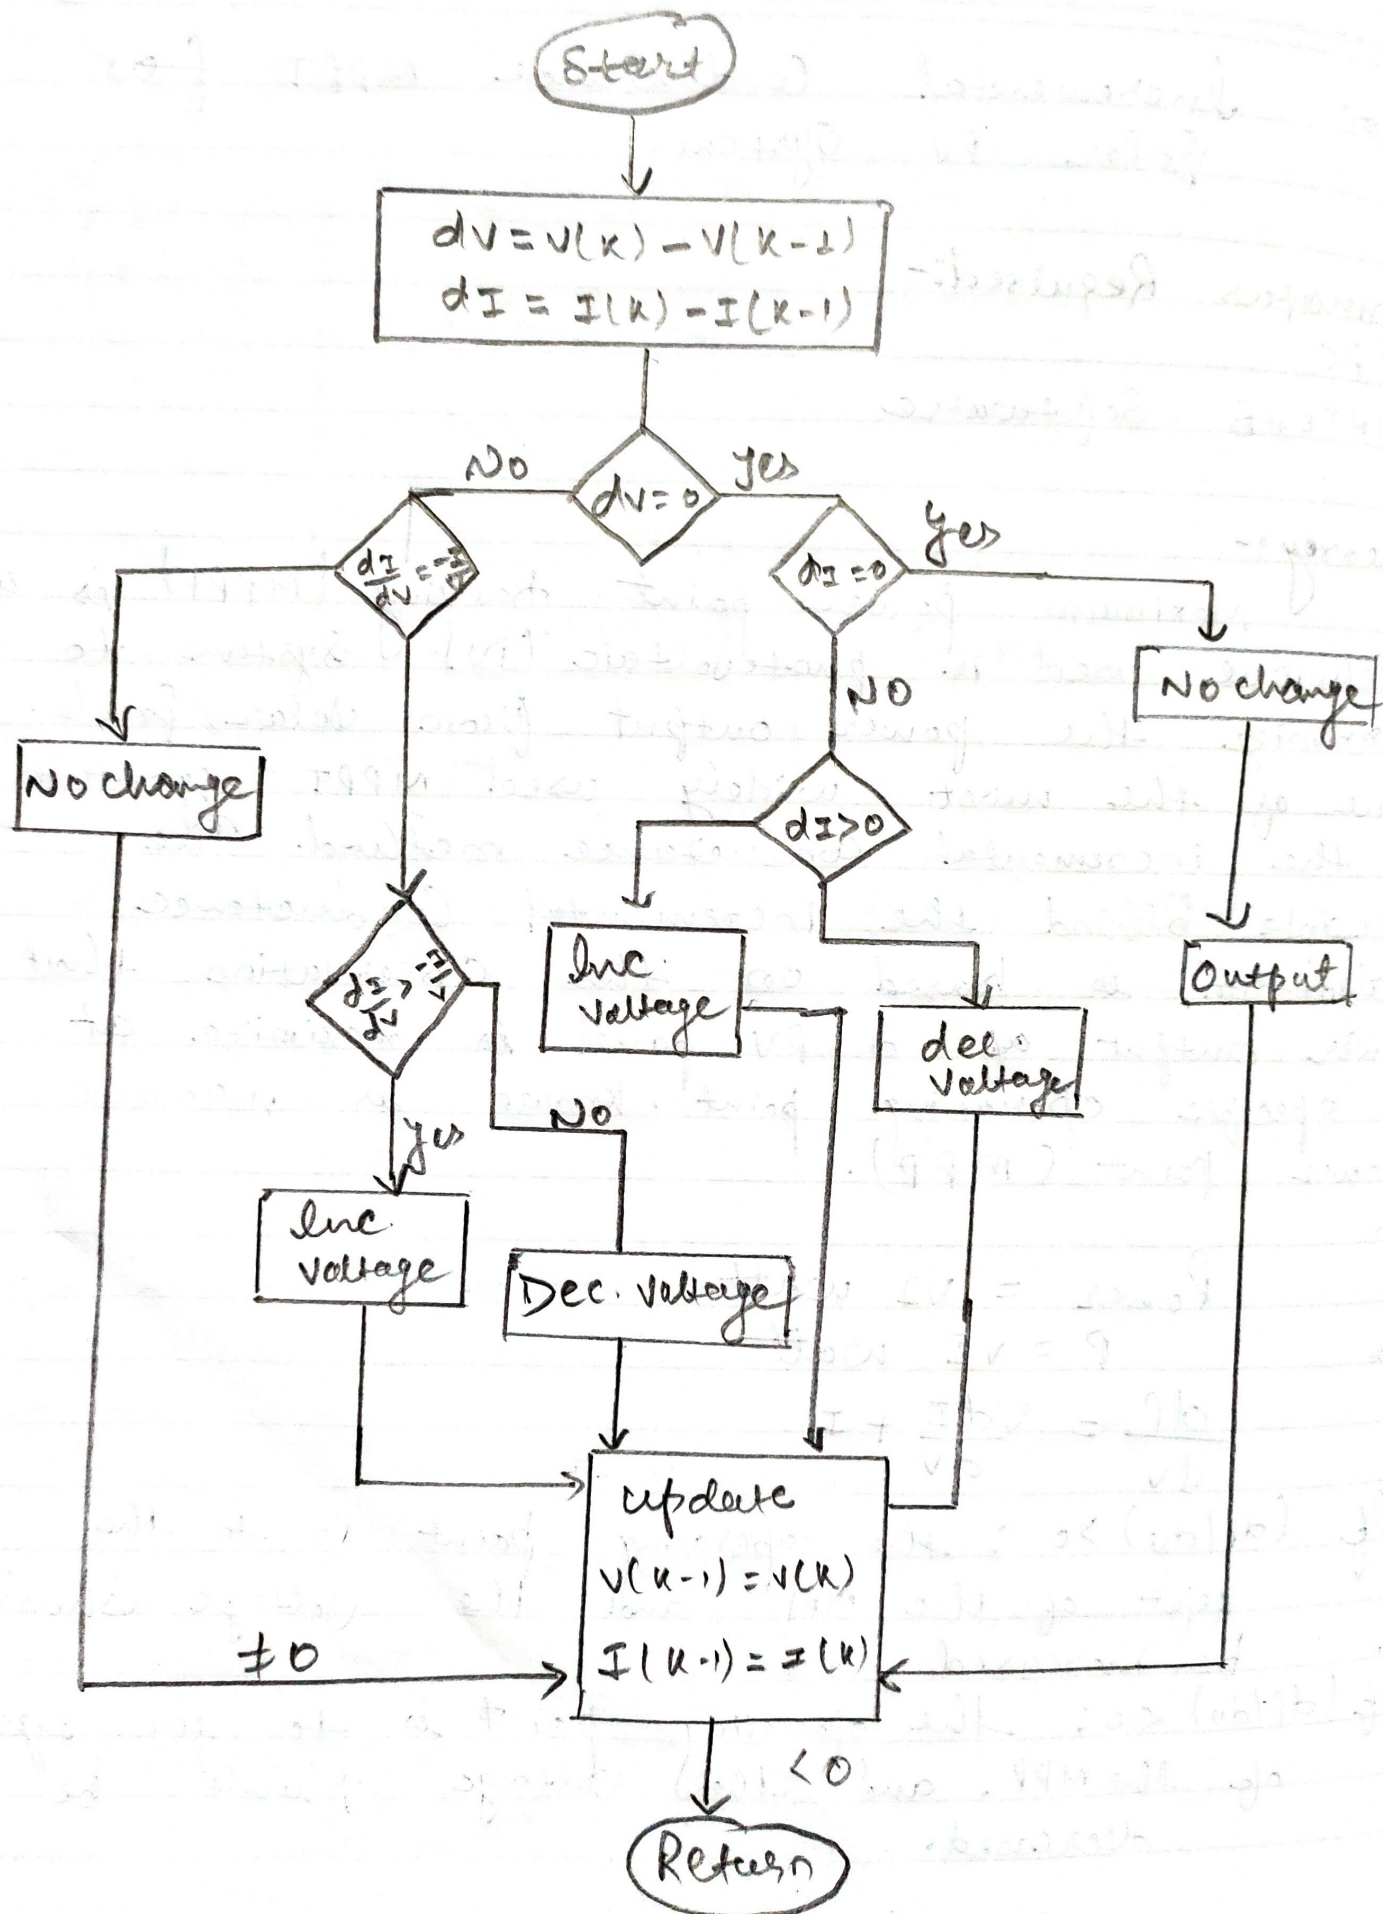 Start
dV = V(K) - V(K-1)
dI = I(K) - I(K-1)
No
dV=0
yes
dI/dV = -I/V
dI=0
yes
No change
NO
No change
dI>0
Output
Inc.
Voltage
dec.
Voltage
dI/dV > -I/V
yes
NO
Inc.
Voltage
Dec. Voltage
update
V(K-1) = V(K)
I(K-1) = I(K)
≠0
<0
Return